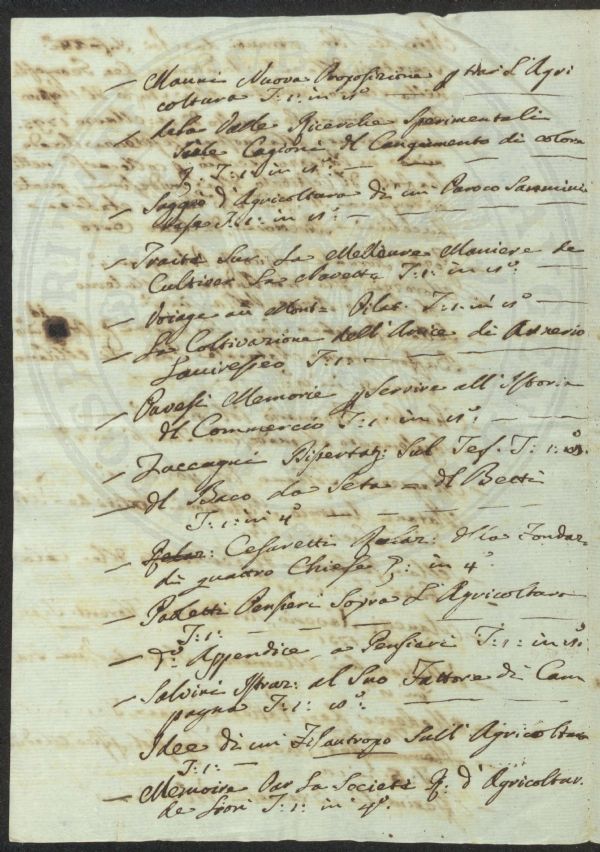 – Manni Nuova Proposizione p trar L'Agri
coltura T: 1: in 8º
– dalla Valle Ricerche Sperimentali
Sulle Cagioni del Cangiamento di colore
T: 1: in 8º
– Saggio d'Agricoltura di un Paroco Samminia
tese T: 1: in 8º
– Traité Sur La Melleure Maniere de
Cultiver La Navette T: 1: in 8º
– Voiage au Mont Pilat. T: 1: in 8º
– La Coltivazione dell'Anice di
T: 1:
– Pavesi Memorie p Servire all'Istoria
del Commercio T: 1: in 8º
– Zaccagni Dissertaz: Sul Tes. T: 1: 8º
– del Baco da Seta – del Betti
T: 1: in 4º
– Relaz: Cesaretti Relaz: della Fondaz.
di quattro Chiese in 4º
– Paoletti Pensieri Sopra L'Agricoltura
T: 1:
– Dº Appendice a Pensieri T: 1: in 8º
– Salvini Istruz: al Suo Fattore di Cam
pagna T: 1: 8º
Idee di un Filantropo Sull'Agricoltura
T: 1: –
– Memoire Par La Societé d'Agricoltur.
T: 1: in 4º